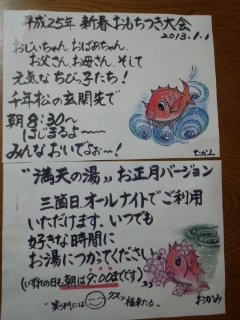 平成25年 新春おもちつき大会
2013.1.1
おじいちゃん、おばあちゃん、
お父さん、お母さん、そして
元気なちびっ子たち!
千年松の玄関先で
朝8:30~
はじまるよ~~~
みんなおいでよぉ~!
"満天の湯"お正月バージョン
三箇日、オールナイトでご利用
いただけます。いつでも
好きな時間に
お湯につかってください
(いずれの日も朝は9:00までです)
おかみ
"笑う門には クス" 福来たる"